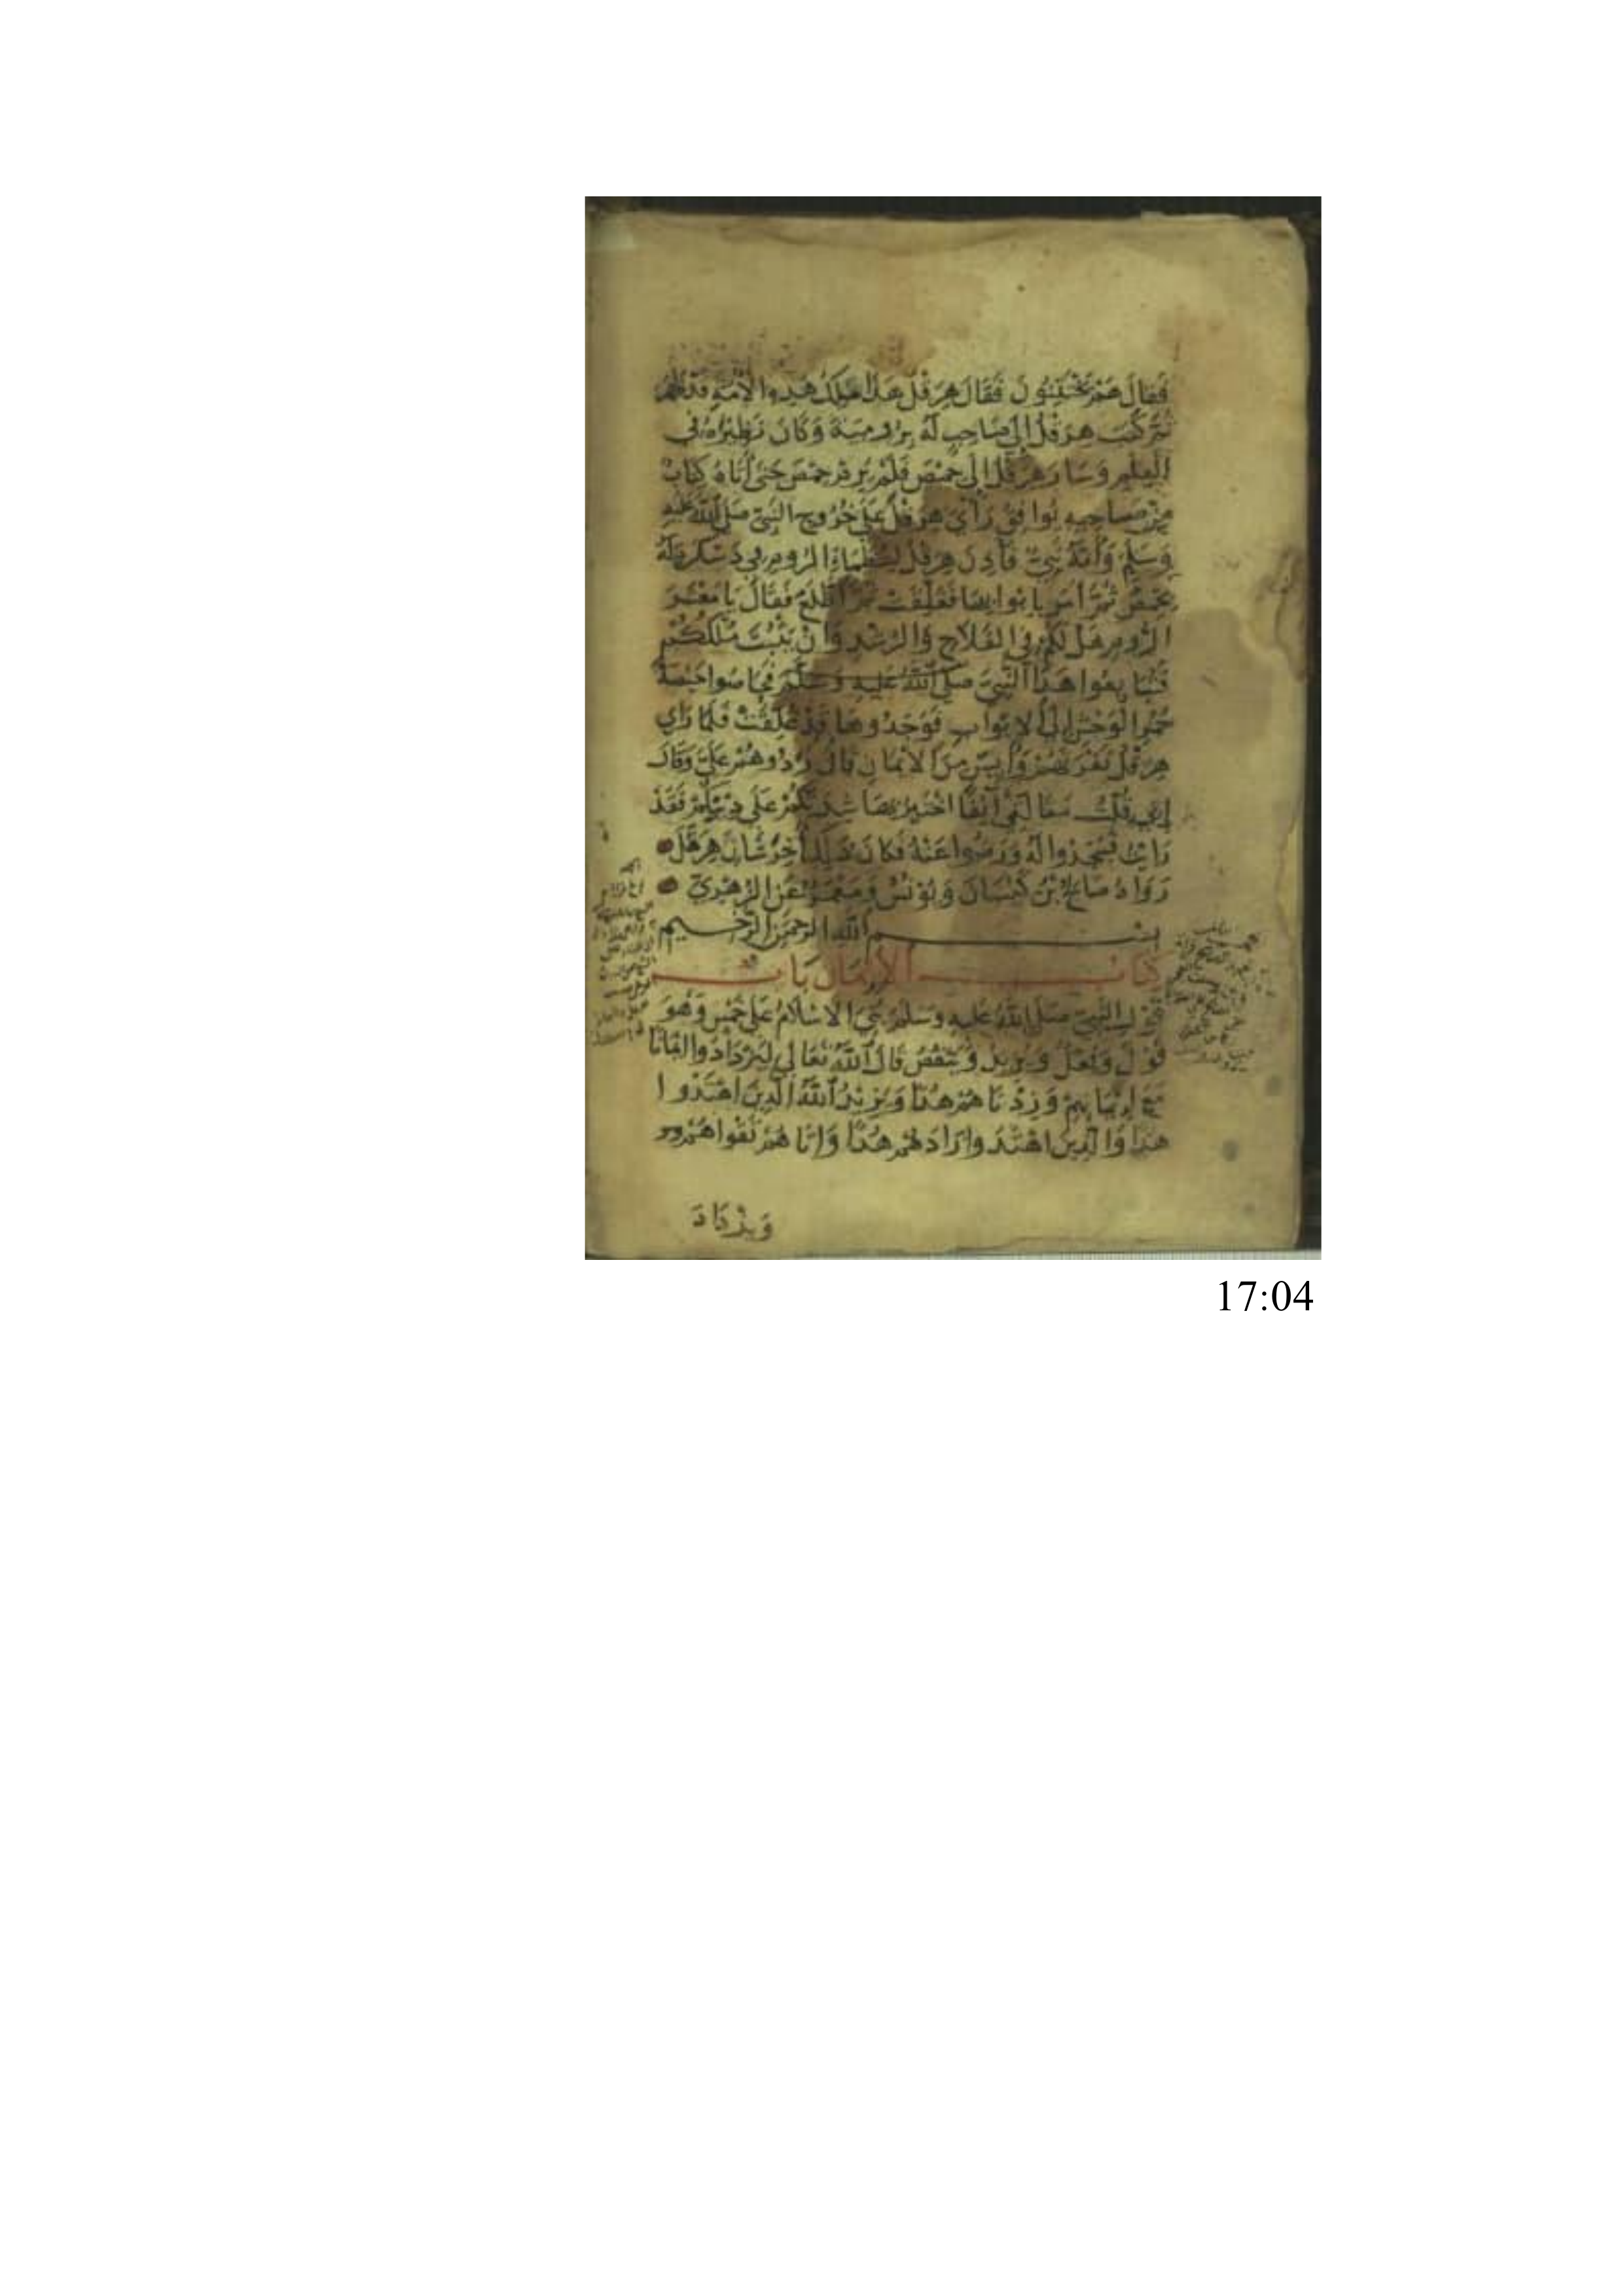 فَقَالَ هُمْ يَخْتَتِنُونَ فَقَالَ هِرَقْلُ هَذَا مَلِكُ هَذِهِ الْأُمَّةِ قَدْ ظَهَرَ
ثُمَّ كَتَبَ هِرَقْلُ إِلَى صَاحِبٍ لَهُ بِرُومِيَةَ وَكَانَ نَظِيرَهُ فِي
الْعِلْمِ وَسَارَ هِرَقْلُ إِلَى حِمْصَ فَلَمْ يَرِمْ حِمْصَ حَتَّى أَتَاهُ كِتَابٌ
مِنْ صَاحِبِهِ يُوَافِقُ رَأْيَ هِرَقْلَ عَلَى خُرُوجِ النَّبِيِّ صَلَّى اللَّهُ عَلَيْهِ
وَسَلَّمَ وَأَنَّهُ نَبِيٌّ فَأَذِنَ هِرَقْلُ لِعُظَمَاءِ الرُّومِ فِي دَسْكَرَةٍ لَهُ
بِحِمْصَ ثُمَّ أَمَرَ بِأَبْوَابِهَا فَغُلِّقَتْ ثُمَّ اطَّلَعَ فَقَالَ يَا مَعْشَرَ
الرُّومِ هَلْ لَكُمْ فِي الْفَلَاحِ وَالرُّشْدِ وَأَنْ يَثْبُتَ مُلْكُكُمْ
فَتُبَايِعُوا هَذَا النَّبِيَّ صَلَّى اللَّهُ عَلَيْهِ وَسَلَّمَ فَحَاصُوا حَيْصَةَ
حُمُرِ الْوَحْشِ إِلَى الْأَبْوَابِ فَوَجَدُوهَا قَدْ غُلِّقَتْ فَلَمَّا رَأَى
هِرَقْلُ نَفْرَتَهُمْ وَأَيِسَ مِنَ الْإِيمَانِ قَالَ رُدُّوهُمْ عَلَيَّ وَقَالَ
إِنِّي قُلْتُ مَقَالَتِي آنِفًا أَخْتَبِرُ بِهَا شِدَّتَكُمْ عَلَى دِينِكُمْ فَقَدْ
رَأَيْتُ فَسَجَدُوا لَهُ وَرَضُوا عَنْهُ فَكَانَ ذَلِكَ آخِرَ شَأْنِ هِرَقْلَ
رَوَاهُ صَالِحُ بْنُ كَيْسَانَ وَيُونُسُ وَمَعْمَرٌ عَنِ الزُّهْرِيِّ
بسم الله الرحمن الرحيم
كتاب الإيمان باب
قَوْلِ النَّبِيِّ صَلَّى اللَّهُ عَلَيْهِ وَسَلَّمَ بُنِيَ الْإِسْلَامُ عَلَى خَمْسٍ وَهُوَ
قَوْلٌ وَفِعْلٌ وَيَزِيدُ وَيَنْقُصُ قَالَ اللَّهُ تَعَالَى لِيَزْدَادُوا إِيمَانًا
مَعَ إِيمَانِهِمْ وَزِدْنَاهُمْ هُدًى وَيَزِيدُ اللَّهُ الَّذِينَ اهْتَدَوْا
هُدًى وَالَّذِينَ اهْتَدَوْا زَادَهُمْ هُدًى وَآتَاهُمْ تَقْوَاهُمْ
وَيَزْدَادَ
17:04